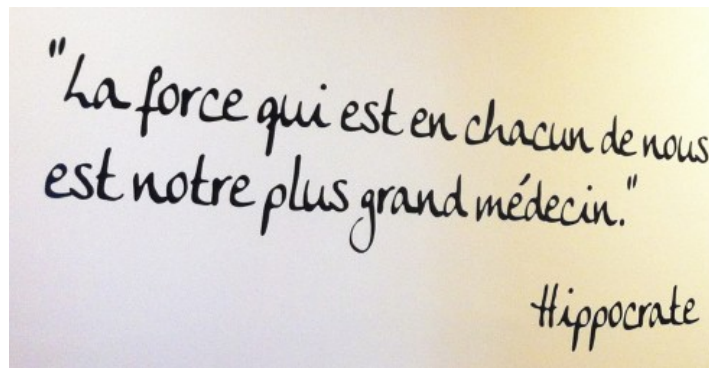 "La force qui est en chacun de nous
est notre plus grand médecin."
Hippocrate